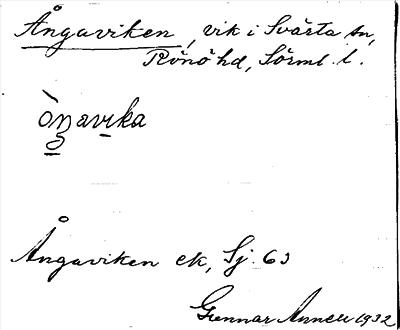 Ångaviken, vik i Svärta sn,
Rönö hd, Sörml. l.
ò̱ŋavi̱ka
Ångaviken ek, Sj. 63
Gunnar Annell 1932